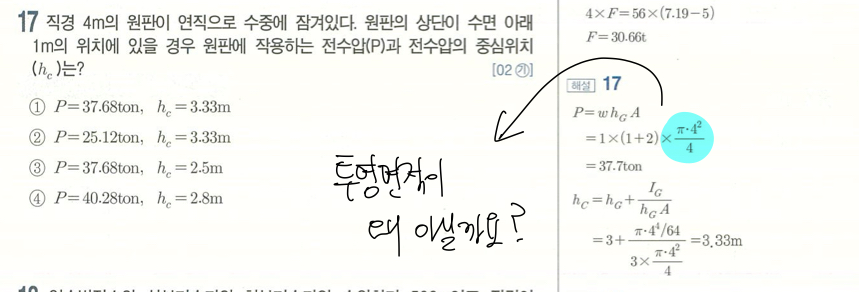 17 직경 4m의 원판이 연직으로 수중에 잠겨있다. 원판의 상단이 수면 아래
1m의 위치에 있을 경우 원판에 작용하는 전수압(P)과 전수압의 중심위치
(h_c)는? [02 ㉮]
① P=37.68ton, h_c=3.33m
② P=25.12ton, h_c=3.33m
③ P=37.68ton, h_c=2.5m
④ P=40.28ton, h_c=2.8m
투영면적이
왜 이실까요?
4×F=56×(7.19-5)
F=30.66t
해설 17
P=wh_G A
=1×(1+2)×π·4²/4
=37.7ton
h_C=h_G+I_G/h_G A
=3+(π·4⁴/64)/(3×π·4²/4)=3.33m